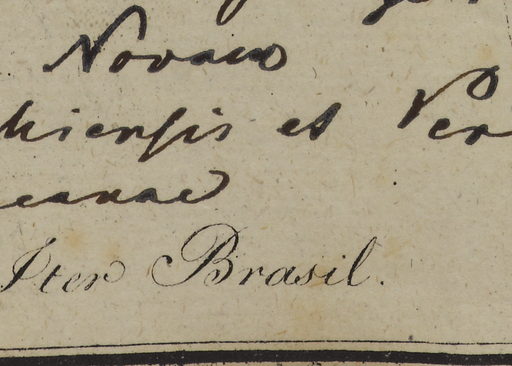 Novae
hiensis et Ver
canae
Iter Brasil.